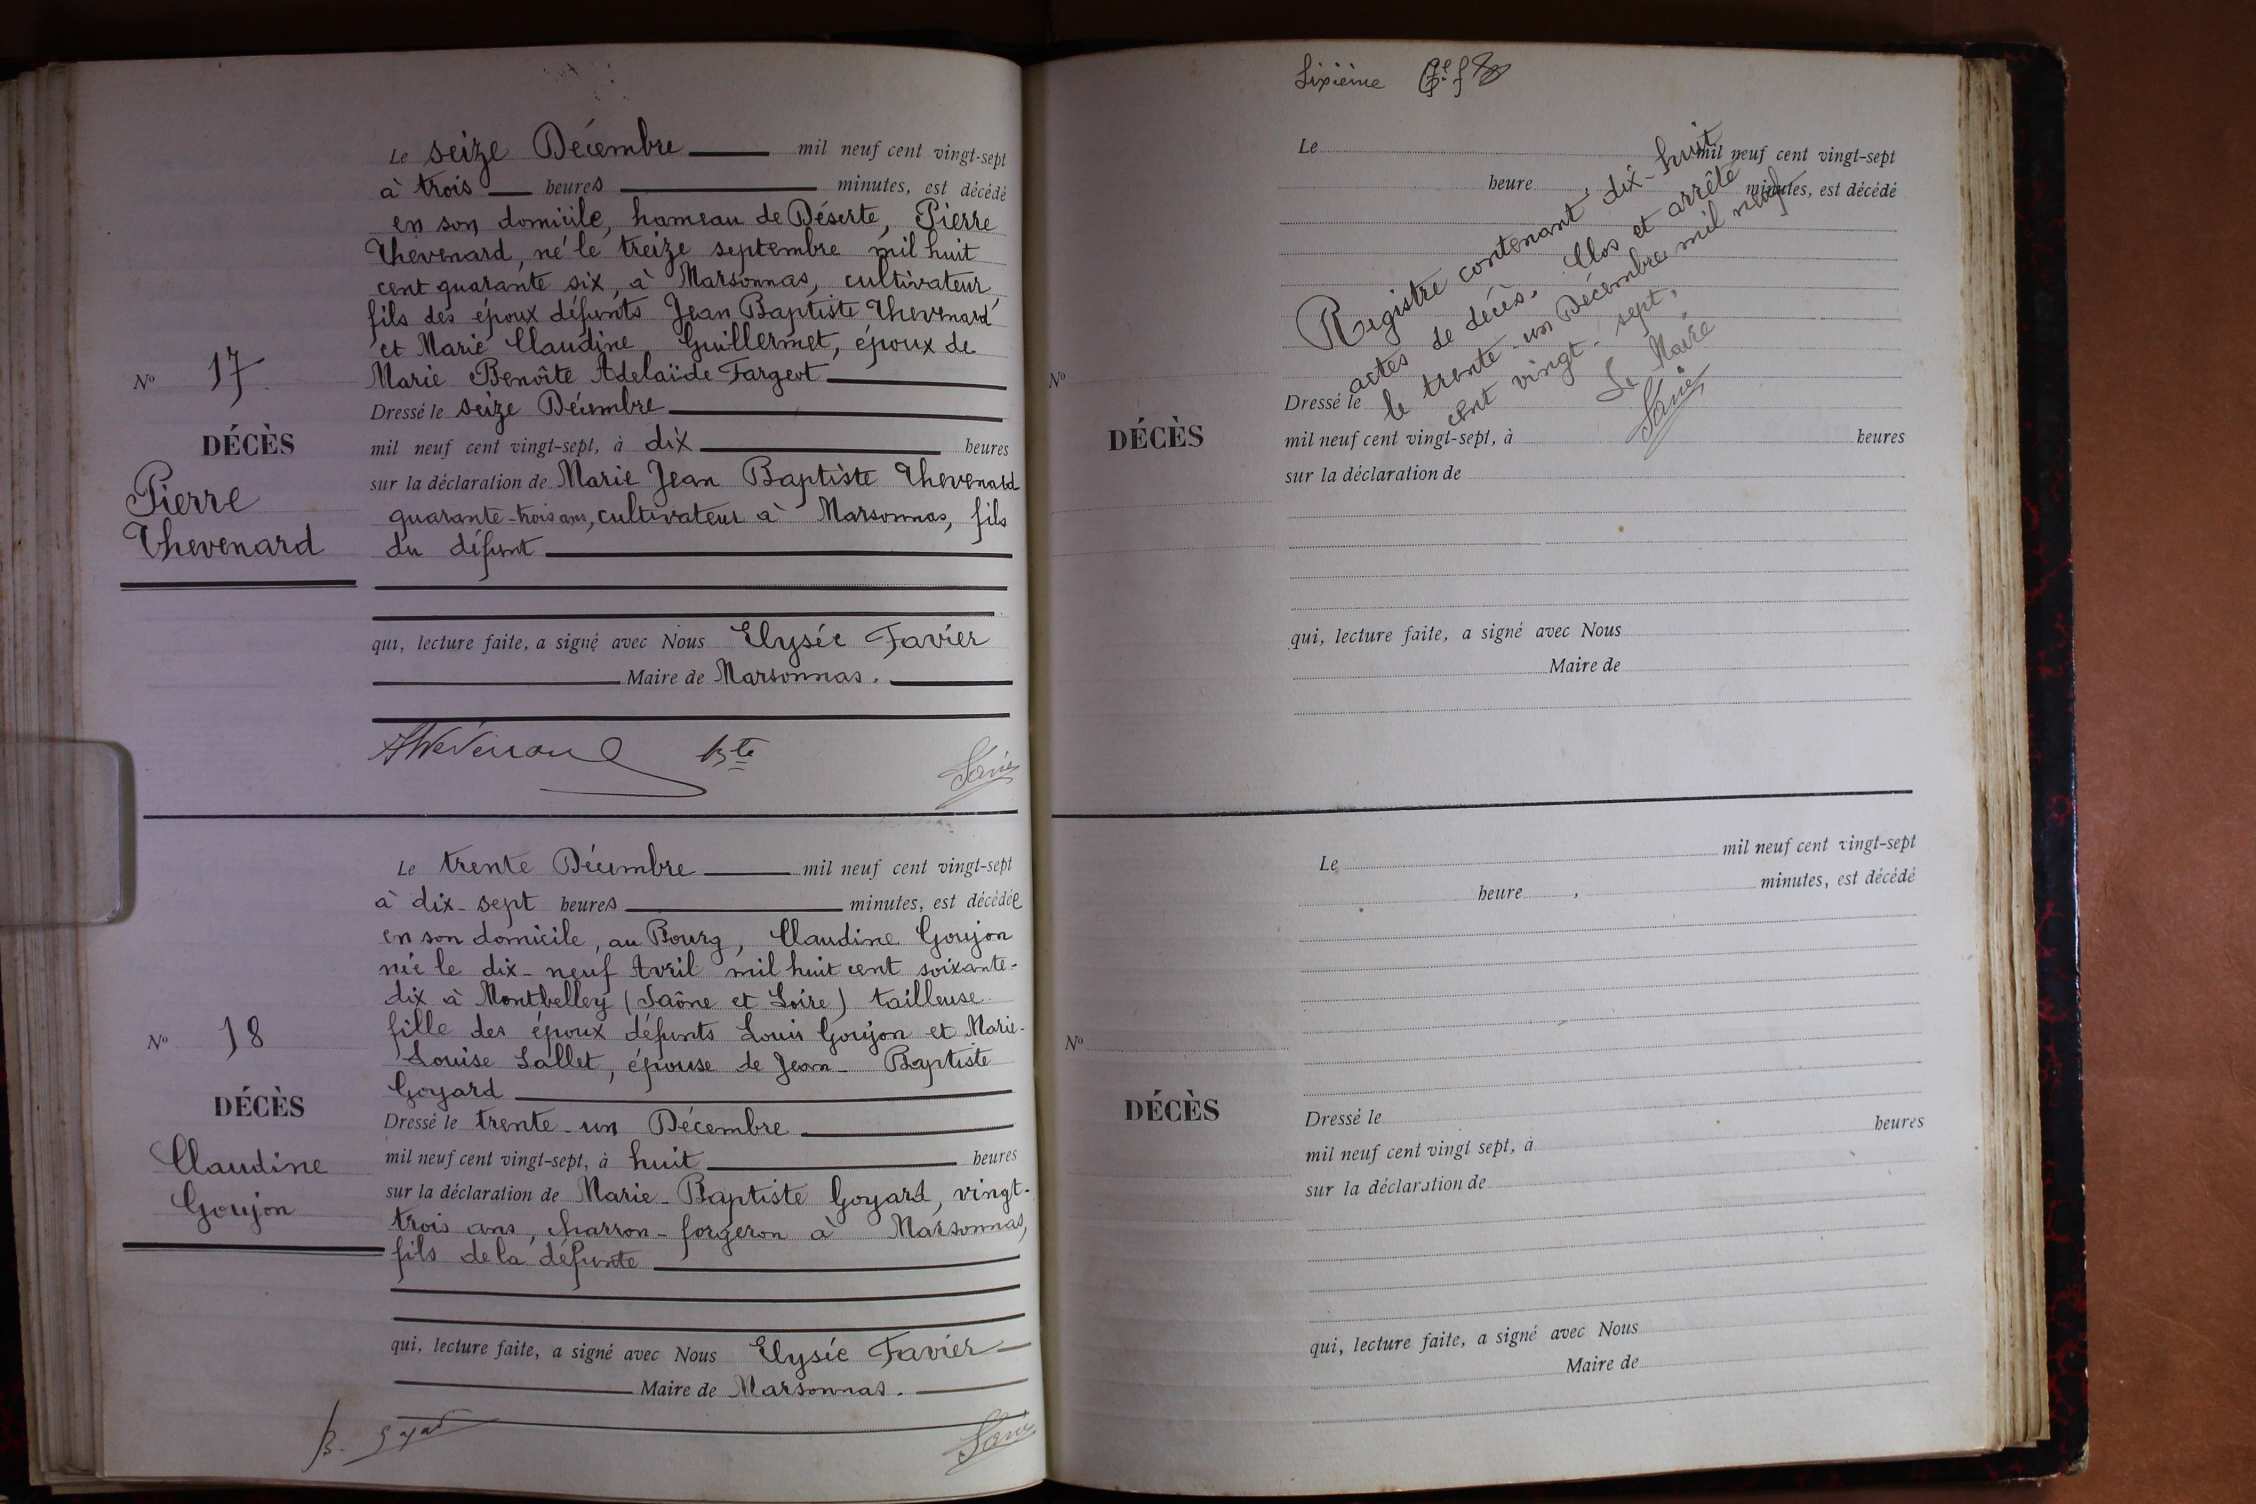 Le seize Décembre mil neuf cent vingt-sept
à trois heures minutes, est décédé
en son domicile, hameau de Déserte, Pierre
Thevenard, né le treize septembre mil huit
cent quarante six, à Marsonnas, cultivateur,
fils des époux défunts Jean Baptiste Thevenard
et Marie Claudine Guillermet, époux de
Marie Benoîte Adelaïde Fargeot
Dressé le seize Décembre
mil neuf cent vingt-sept, à dix heures
sur la déclaration de Marie Jean Baptiste Thevenard
quarante-trois ans, cultivateur à Marsonnas, fils
du défunt
qui, lecture faite, a signé avec Nous Elysée Favier
Maire de Marsonnas.
Thevenard Bte
Favier
No 17
DÉCÈS
Pierre
Thevenard
Le trente Décembre mil neuf cent vingt-sept
à dix-sept heures minutes, est décédée
en son domicile, au Bourg, Claudine Goujon
née le dix-neuf Avril mil huit cent soixante-
dix à Montbelley (Saône et Loire) tailleuse
fille des époux défunts Louis Goujon et Marie-
Louise Sallet, épouse de Jean-Baptiste
Goyard
Dressé le trente-un Décembre
mil neuf cent vingt-sept, à huit heures
sur la déclaration de Marie-Baptiste Goyard, vingt-
trois ans, charron-forgeron à Marsonnas,
fils de la défunte
qui, lecture faite, a signé avec Nous Elysée Favier
Maire de Marsonnas.
B. Goyard
Favier
No 18
DÉCÈS
Claudine
Goujon
Sixième
Le mil neuf cent vingt-sept
heure minutes, est décédé
Registre contenant dix-huit
actes de décès. Clos et arrêté
le trente-un Décembre mil neuf
cent vingt-sept,
Le Maire
Favier
Dressé le
mil neuf cent vingt-sept, à heures
sur la déclaration de
qui, lecture faite, a signé avec Nous
Maire de
No
DÉCÈS
Le mil neuf cent vingt-sept
heure , minutes, est décédé
Dressé le
mil neuf cent vingt sept, à heures
sur la déclaration de
qui, lecture faite, a signé avec Nous
Maire de
No
DÉCÈS